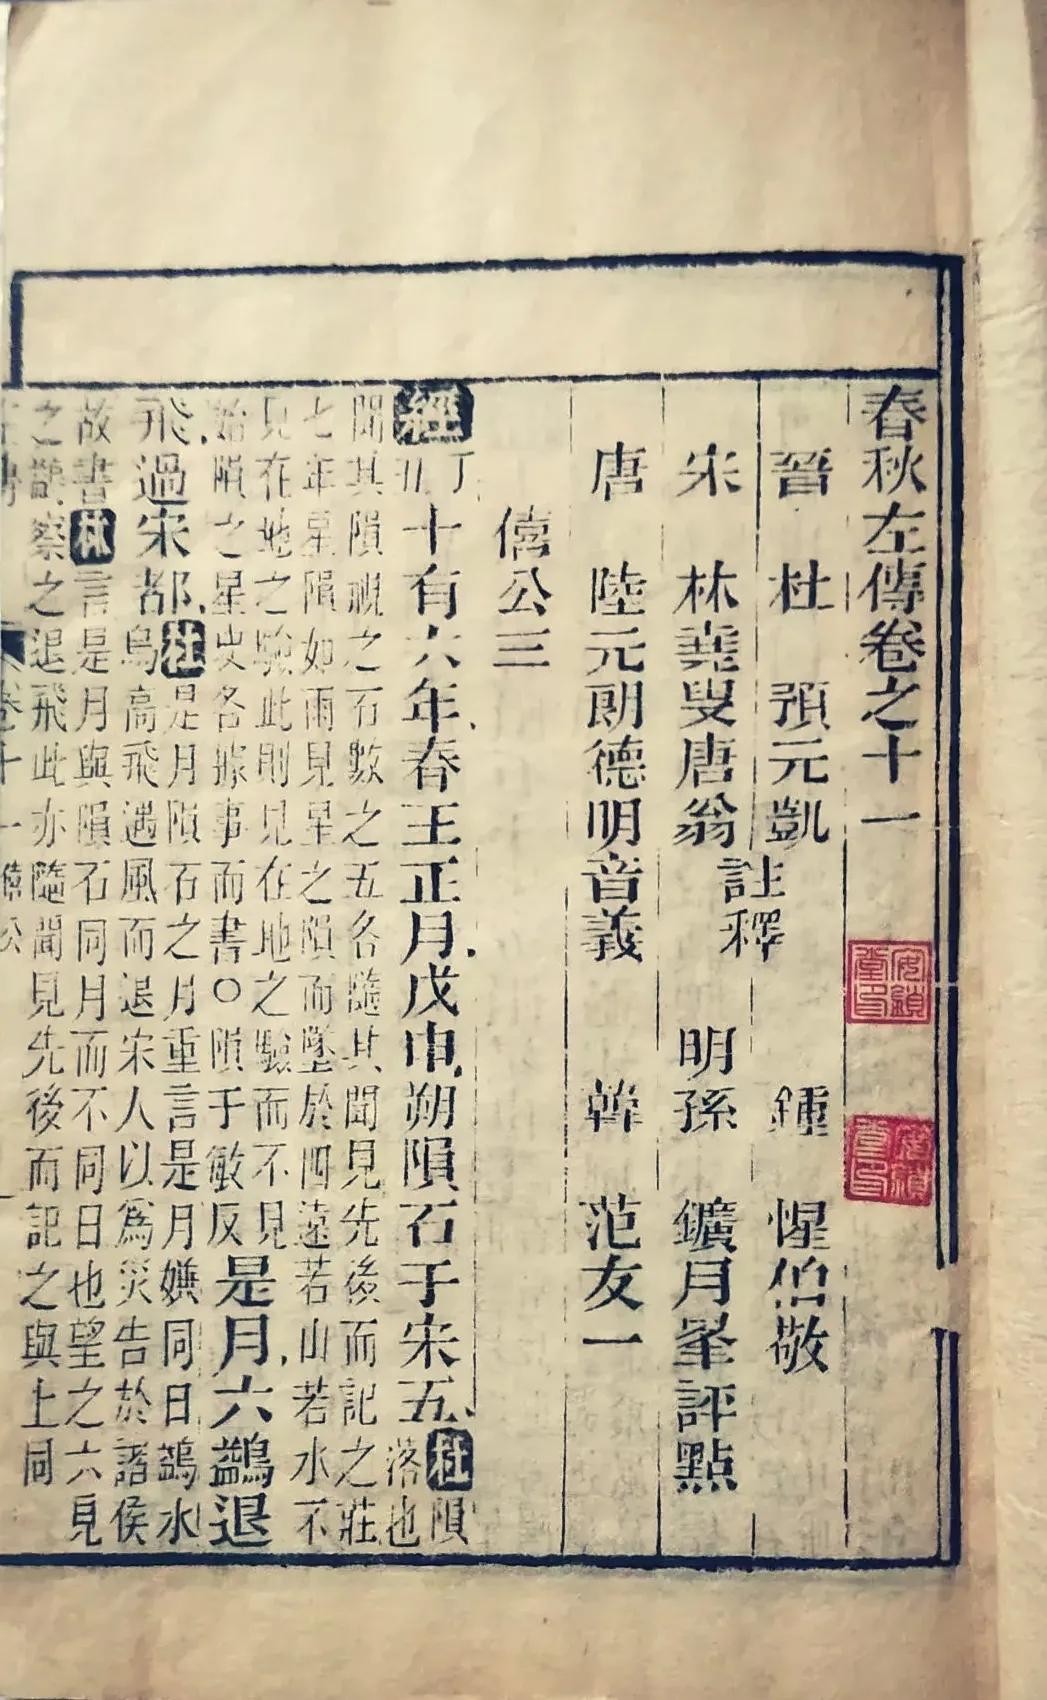 春秋左傳卷之十一
晉 杜 預元凱 鍾 惺伯敬
註釋
宋 林堯叟唐翁 明孫 鑛月峯評點
唐 陸元朗德明音義 韓 范友一
僖公三
經 十有六年春王正月戊申朔隕石于宋五 杜 隕
落也
聞其隕視之石數之五各隨其聞見先後而記之莊
七年星隕如雨見星之隕而墜於四遠若山若水不
見在地之驗此則見在地之驗而不見
始隕之星史各據事而書○隕于敏反 是月六鷁退
飛過宋都 杜 是月隕石之月重言是月嫌同日鷁水
鳥高飛遇風而退宋人以爲災告於諸侯
故書 林 言是月與隕石同月而不同日也望之六見
之鷁察之退飛此亦隨聞見先後而記之與上同